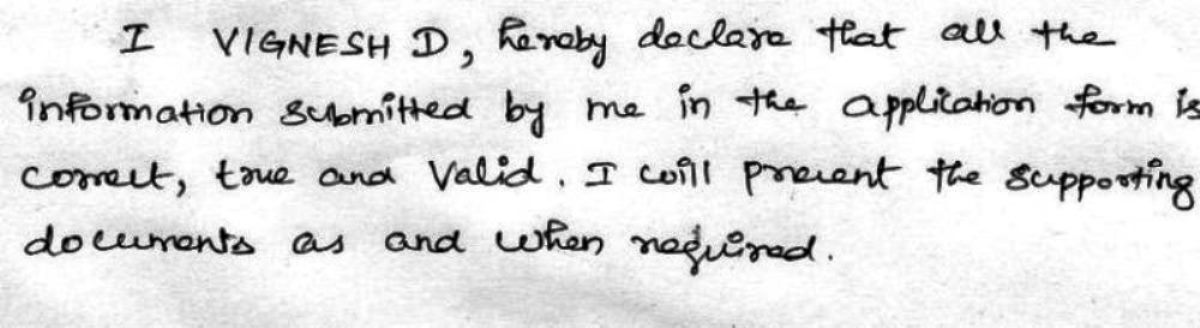 I VIGNESH D, hereby declare that all the
information submitted by me in the application form is
correct, true and Valid. I will present the supporting
documents as and when required.